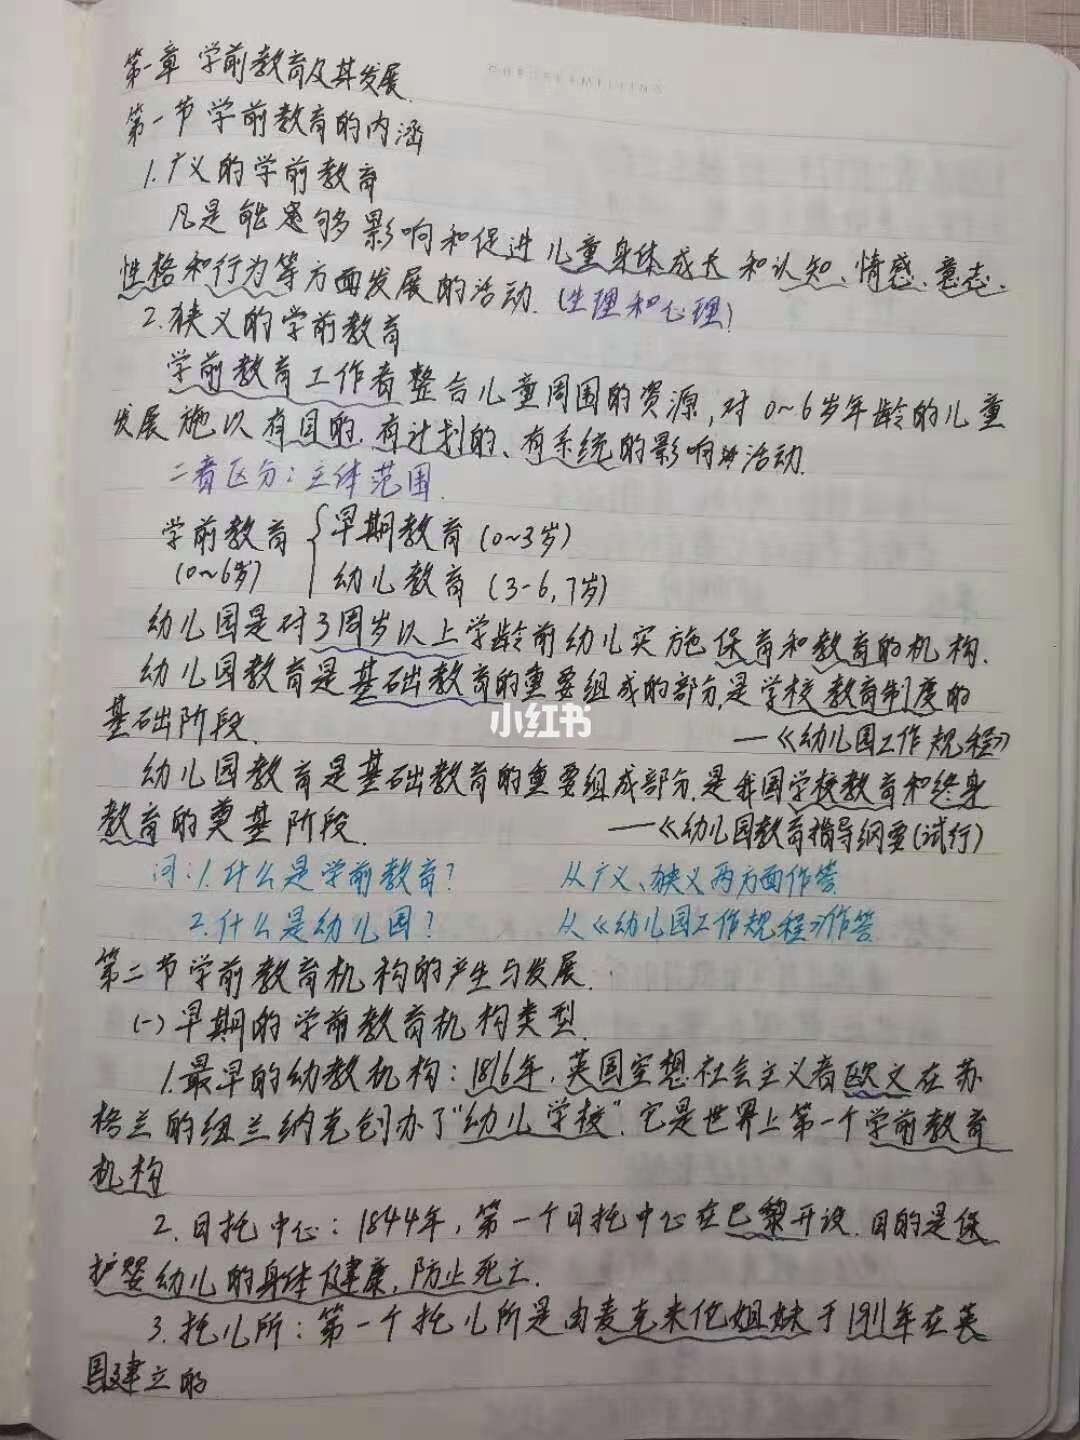 第一章 学前教育及其发展.
第一节 学前教育的内涵
1.广义的学前教育
凡是能够影响和促进儿童身体成长和认知、情感、意志、
性格和行为等方面发展的活动.(生理和心理)
2.狭义的学前教育
学前教育工作者整合儿童周围的资源,对0~6岁年龄的儿童
发展施以有目的、有计划的、有系统的影响活动.
二者区分:主体范围.
学前教育 早期教育(0~3岁)
(0~6岁) 幼儿教育(3-6,7岁)
幼儿园是对3周岁以上学龄前幼儿实施保育和教育的机构.
幼儿园教育是基础教育的重要组成的部分,是学校教育制度的
基础阶段.
小红书
—《幼儿园工作规程》
幼儿园教育是基础教育的重要组成部分,是我国学校教育和终身
教育的奠基阶段. —《幼儿园教育指导纲要(试行)
问:1.什么是学前教育? 从广义、狭义两方面作答
2.什么是幼儿园? 从《幼儿园工作规程》作答
第二节 学前教育机构的产生与发展.
(一)早期的学前教育机构类型.
1.最早的幼教机构:1816年,英国空想社会主义者欧文在苏
格兰的纽兰纳克创办了“幼儿学校”.它是世界上第一个学前教育
机构
2.日托中心:1844年,第一个日托中心在巴黎开设.目的是保
护婴幼儿的身体健康,防止死亡.
3.托儿所:第一个托儿所是由麦克米伦姐妹于1911年在英
国建立的